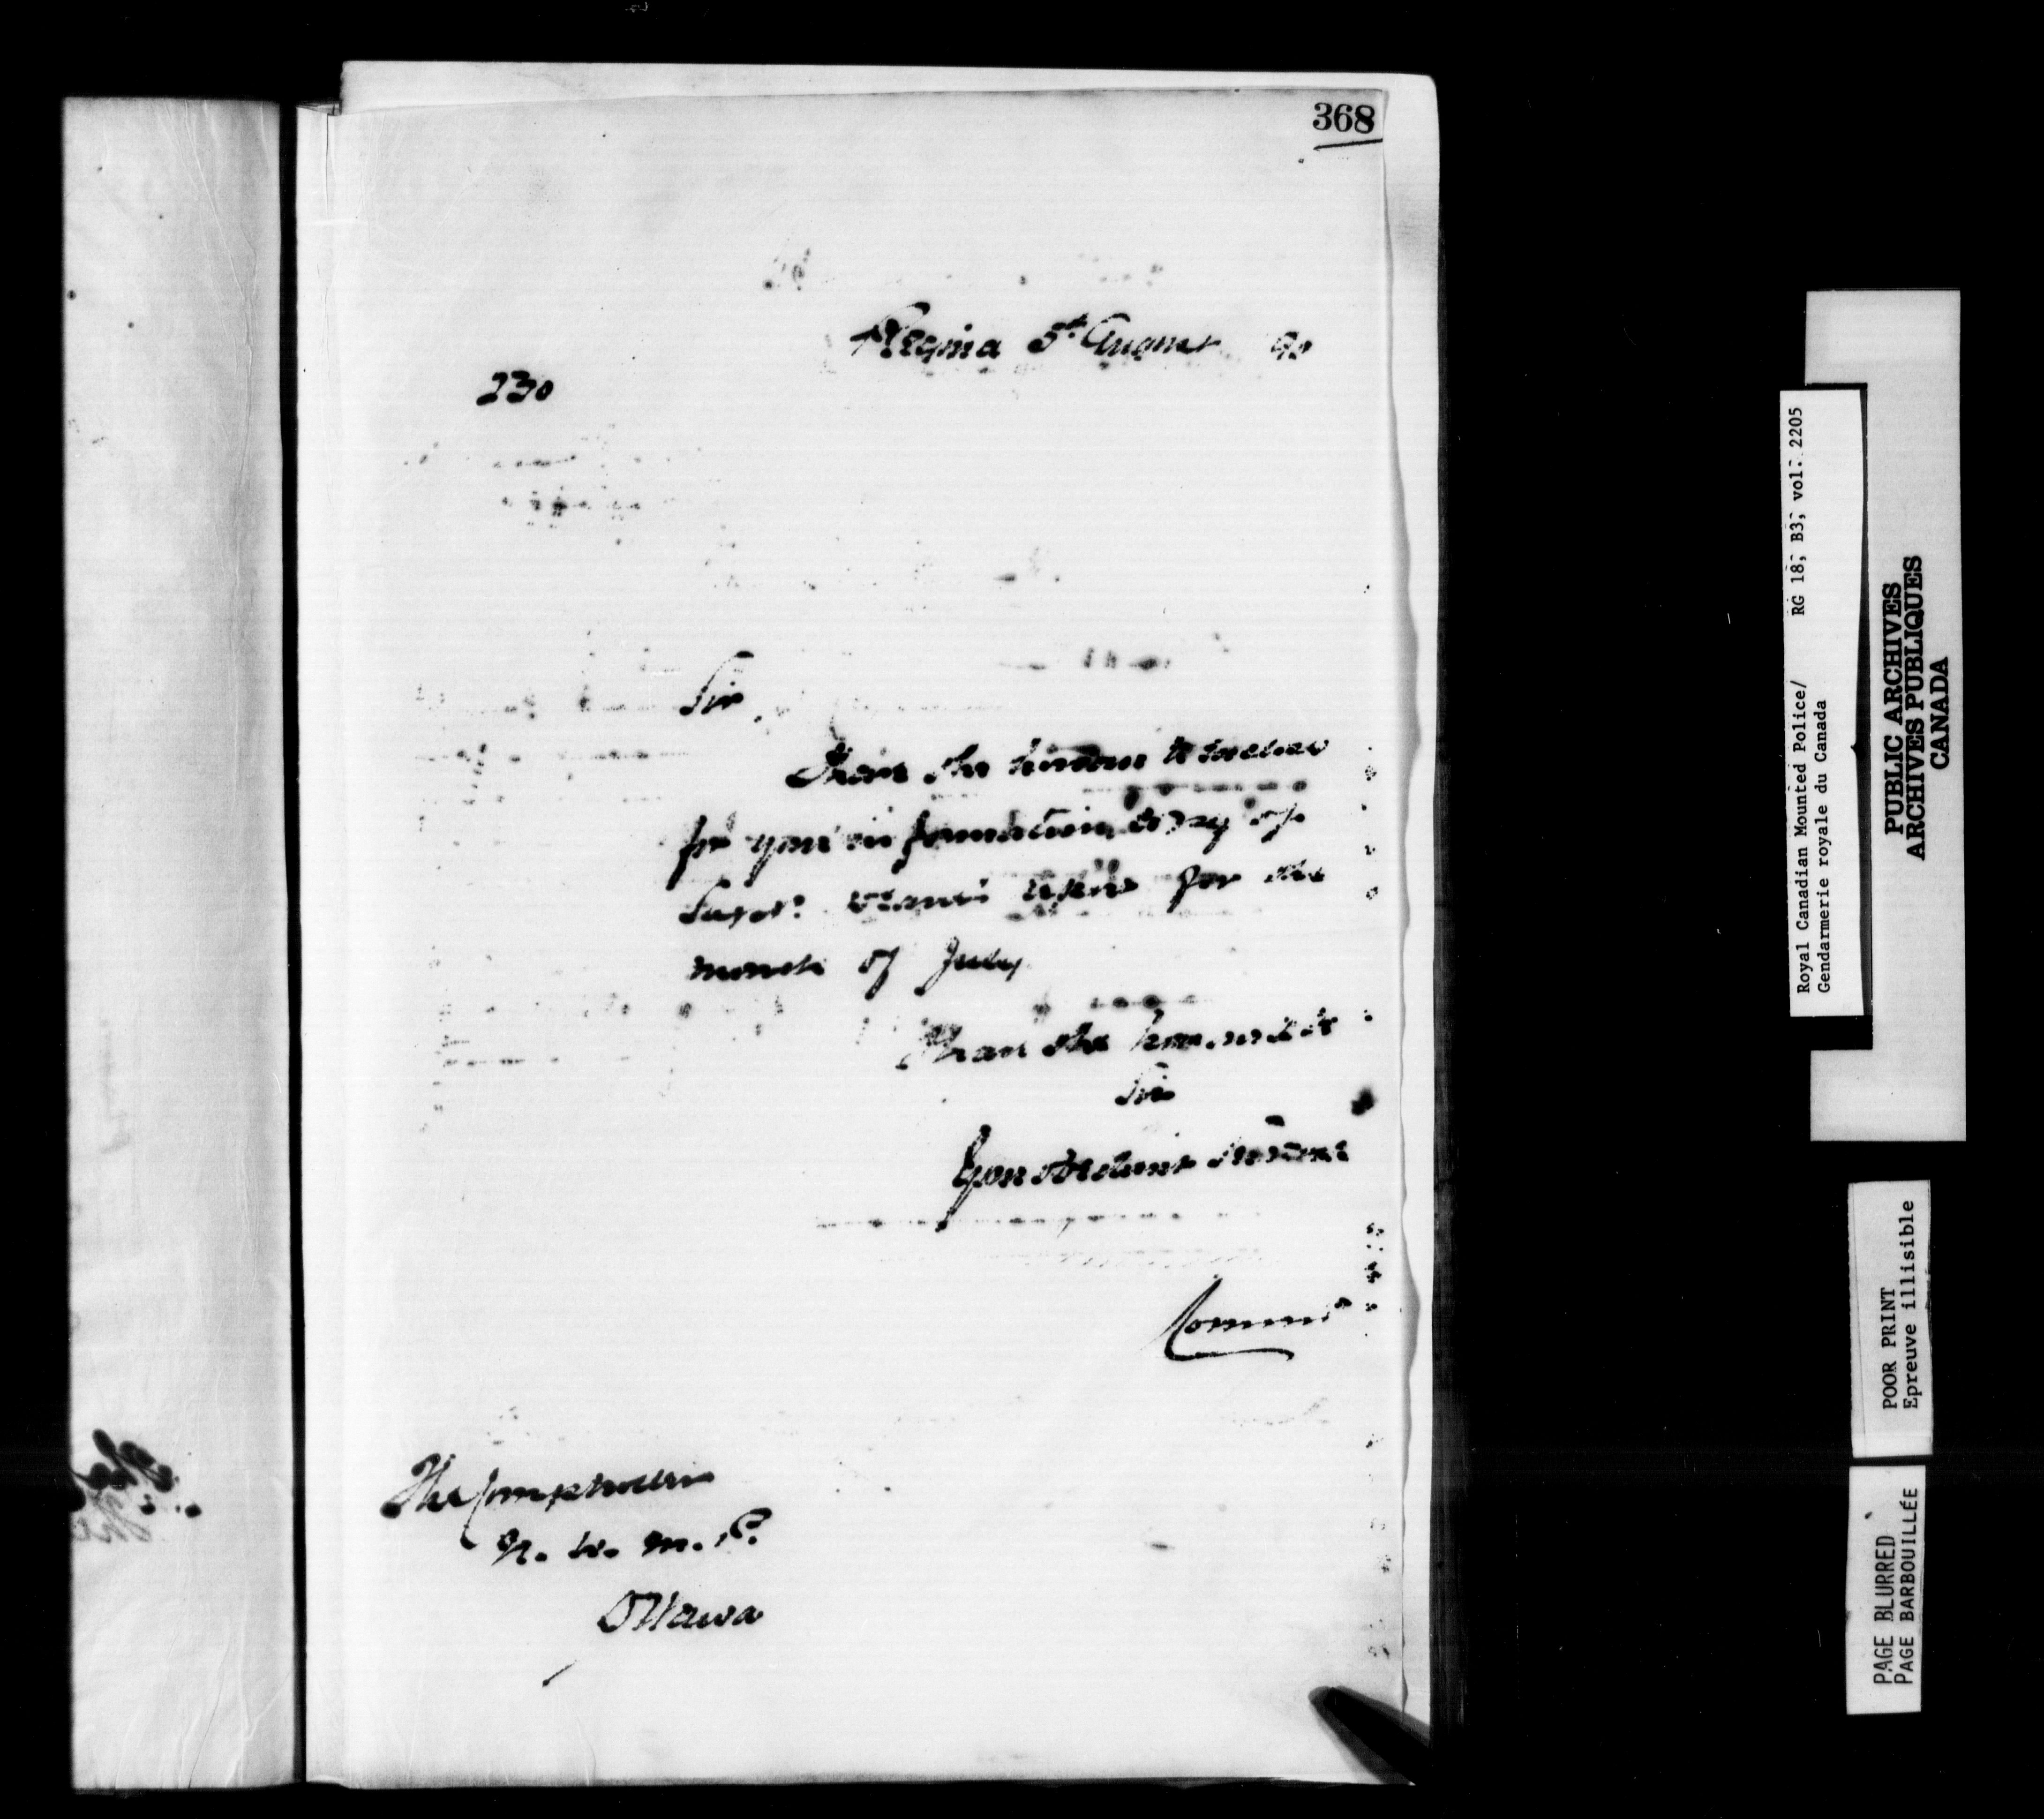 368
Regina 5th August 90
230
Sir,
I have the honour to enclose
for your information, copy of
Supt: report for the
month of July
I have the honour to be
Sir
Your obedient servant
Commr
The Comptroller
N. W. M. P.
Ottawa
Royal Canadian Mounted Police/ RG 18, B3, vol. 2205
Gendarmerie royale du Canada
PUBLIC ARCHIVES
ARCHIVES PUBLIQUES
CANADA
POOR PRINT
Epreuve illisible
PAGE BLURRED
PAGE BARBOUILLÉE